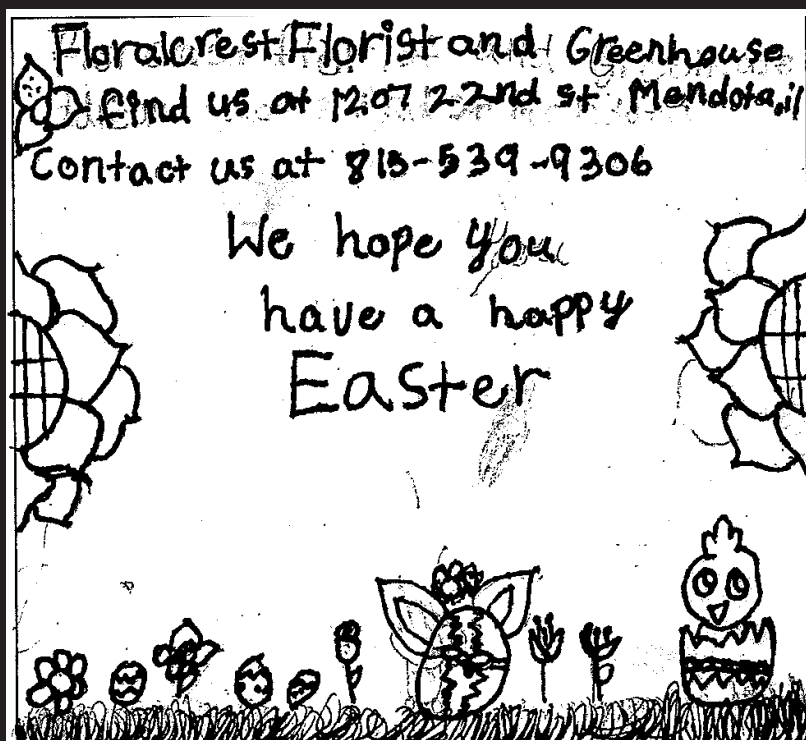 Floralcrest Florist and Greenhouse
find us at 1207 22nd st Mendota, il
Contact us at 815-539-9306
We hope you
have a happy
Easter